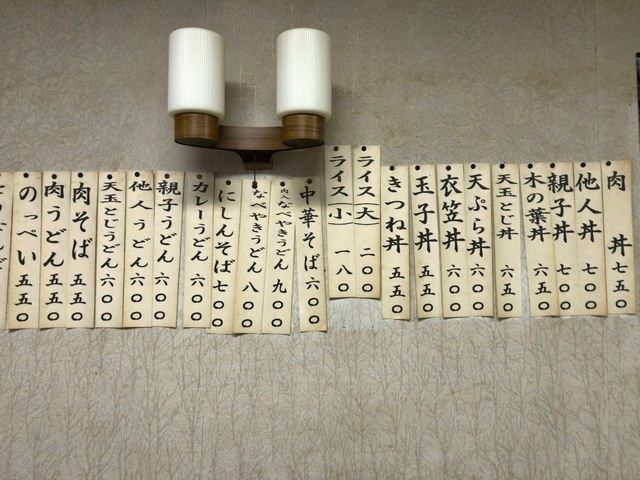 肉丼 七五〇
他人丼 七〇〇
親子丼 七〇〇
木の葉丼 六五〇
天玉とじ丼 六五〇
天ぷら丼 六〇〇
衣笠丼 六〇〇
玉子丼 五五〇
きつね丼 五五〇
ライス(大) 二〇〇
ライス(小) 一八〇
中華そば 六〇〇
肉なべやきうどん 九〇〇
なべやきうどん 八〇〇
にしんそば 七〇〇
カレーうどん 六〇〇
親子うどん 六〇〇
他人うどん 六〇〇
天玉とじうどん 六〇〇
肉そば 五五〇
肉うどん 五五〇
のっぺい 五五〇